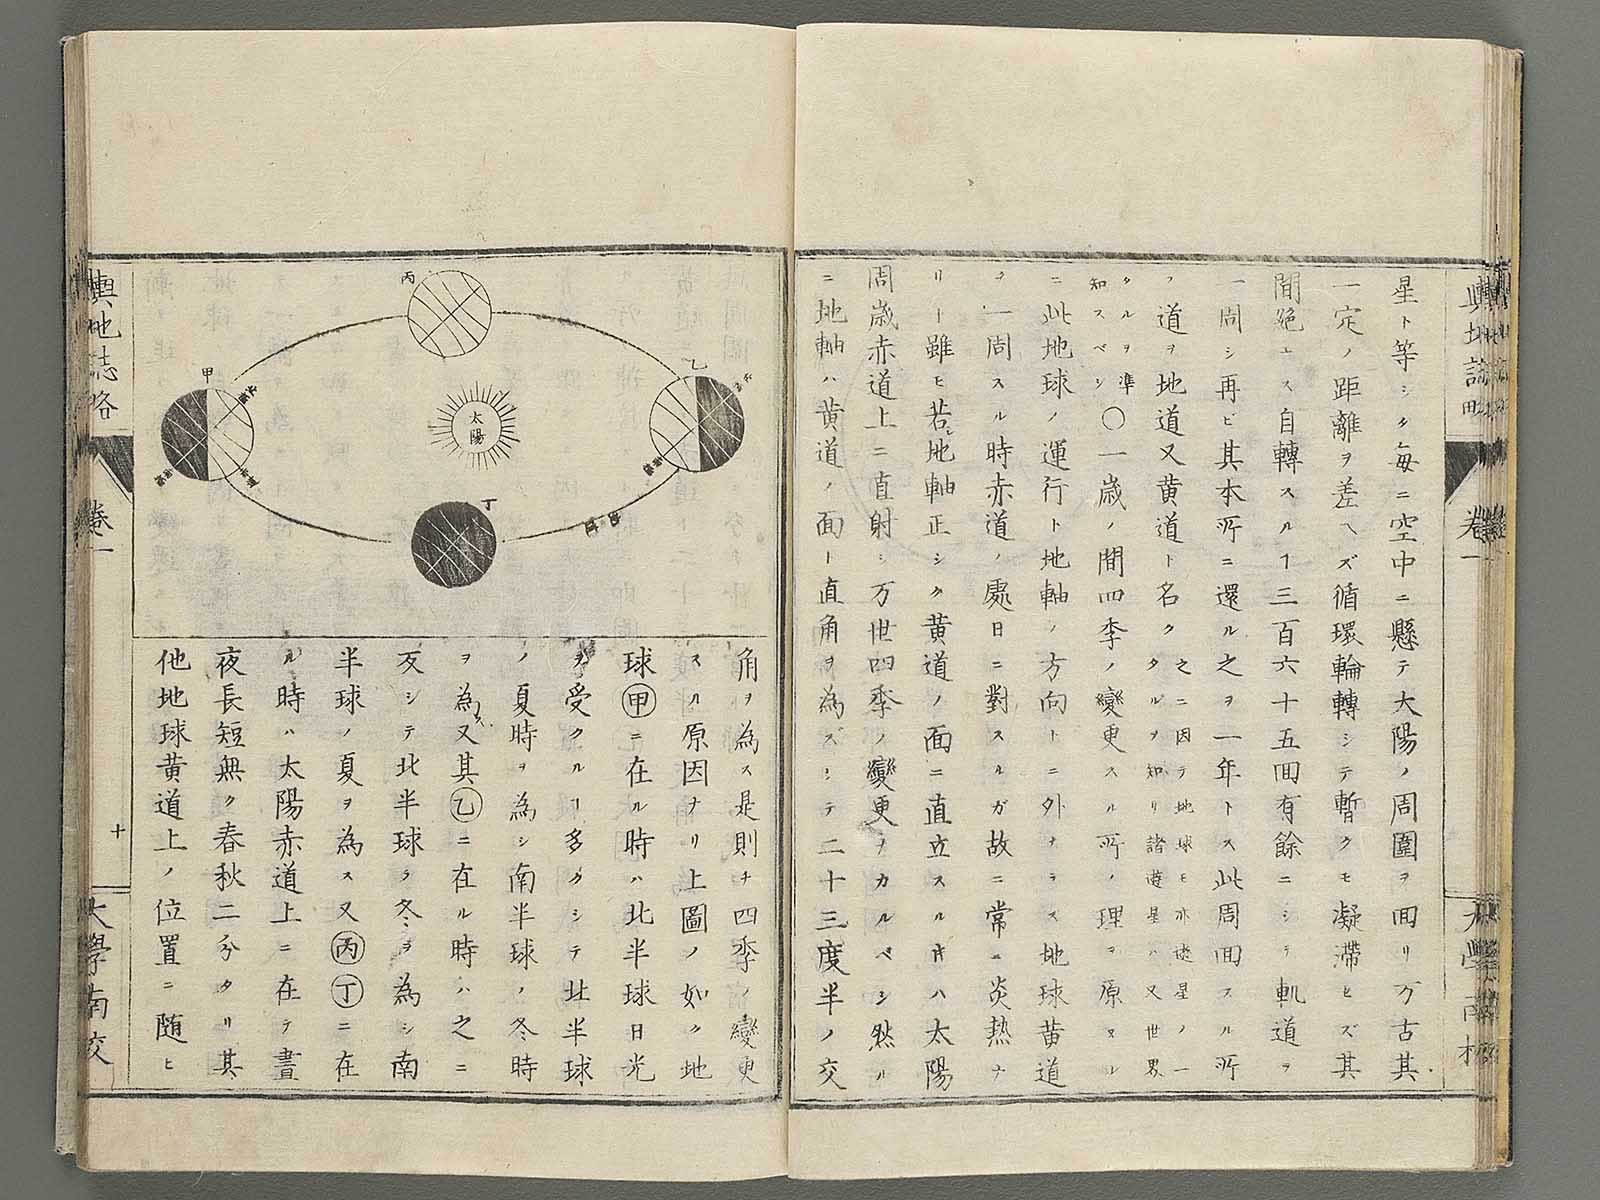 輿地誌略
卷一
大學南校
星ト等シク毎ニ空中ニ懸テ大陽ノ周圍ヲ囬リ万古其
一定ノ距離ヲ差ヘズ循環輪轉シテ暫クモ凝滞セズ其
間絶エス自轉スルヿ三百六十五囬有餘ニシテ軌道ヲ
一周シ再ビ其本所ニ還ル之ヲ一年トス此周囬スル所
ノ道ヲ地道又黄道ト名ク
之ニ因テ地球モ亦遊星ノ一
タルヲ知リ諸遊星ハ又世界
タルヲ準
知スベシ
〇一歳ノ間四季ノ變更スル所ノ理ヲ原ヌレ
ニ此地球ノ運行ト地軸ノ方向トニ外ナラス地球黄道
ヲ一周スル時赤道ノ處日ニ對スルガ故ニ常ニ炎熱ナ
リト雖モ若シ地軸正シク黄道ノ面ニ直立スル片ハ太陽
周歳赤道上ニ直射シ万世四季ノ變更ナカルベシ然ル
ニ地軸ハ黄道ノ面ト直角ヲ為ズシテ二十三度半ノ交
丙
甲
乙
丁
太陽
角ヲ為ス是則チ四季ノ變更
スル原因ナリ上圖ノ如ク地
球甲ニ在ル時ハ北半球日光
ヲ受クルヿ多クシテ北半球
ノ夏時ヲ為シ南半球ノ冬時
ヲ為ス又其乙ニ在ル時ハ之ニ
反シテ北半球ノ冬ヲ為シ南
半球ノ夏ヲ為ス又丙丁ニ在
ル時ハ太陽赤道上ニ在テ晝
夜長短無ク春秋二分タリ其
他地球黄道上ノ位置ニ随ヒ
輿地誌略
卷一
十
大學南校